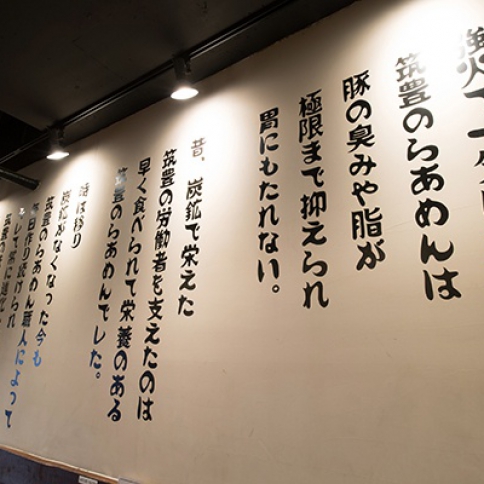 筑豊のらあめんは
豚の臭みや脂が
極限まで抑えられ
胃にもたれない。
昔、炭鉱で栄えた
筑豊の労働者を支えたのは
早く食べられて栄養のある
筑豊のらあめんでした。
時は移り
炭鉱がなくなった今も
筑豊のらあめん職人によって
毎日作り続けられ